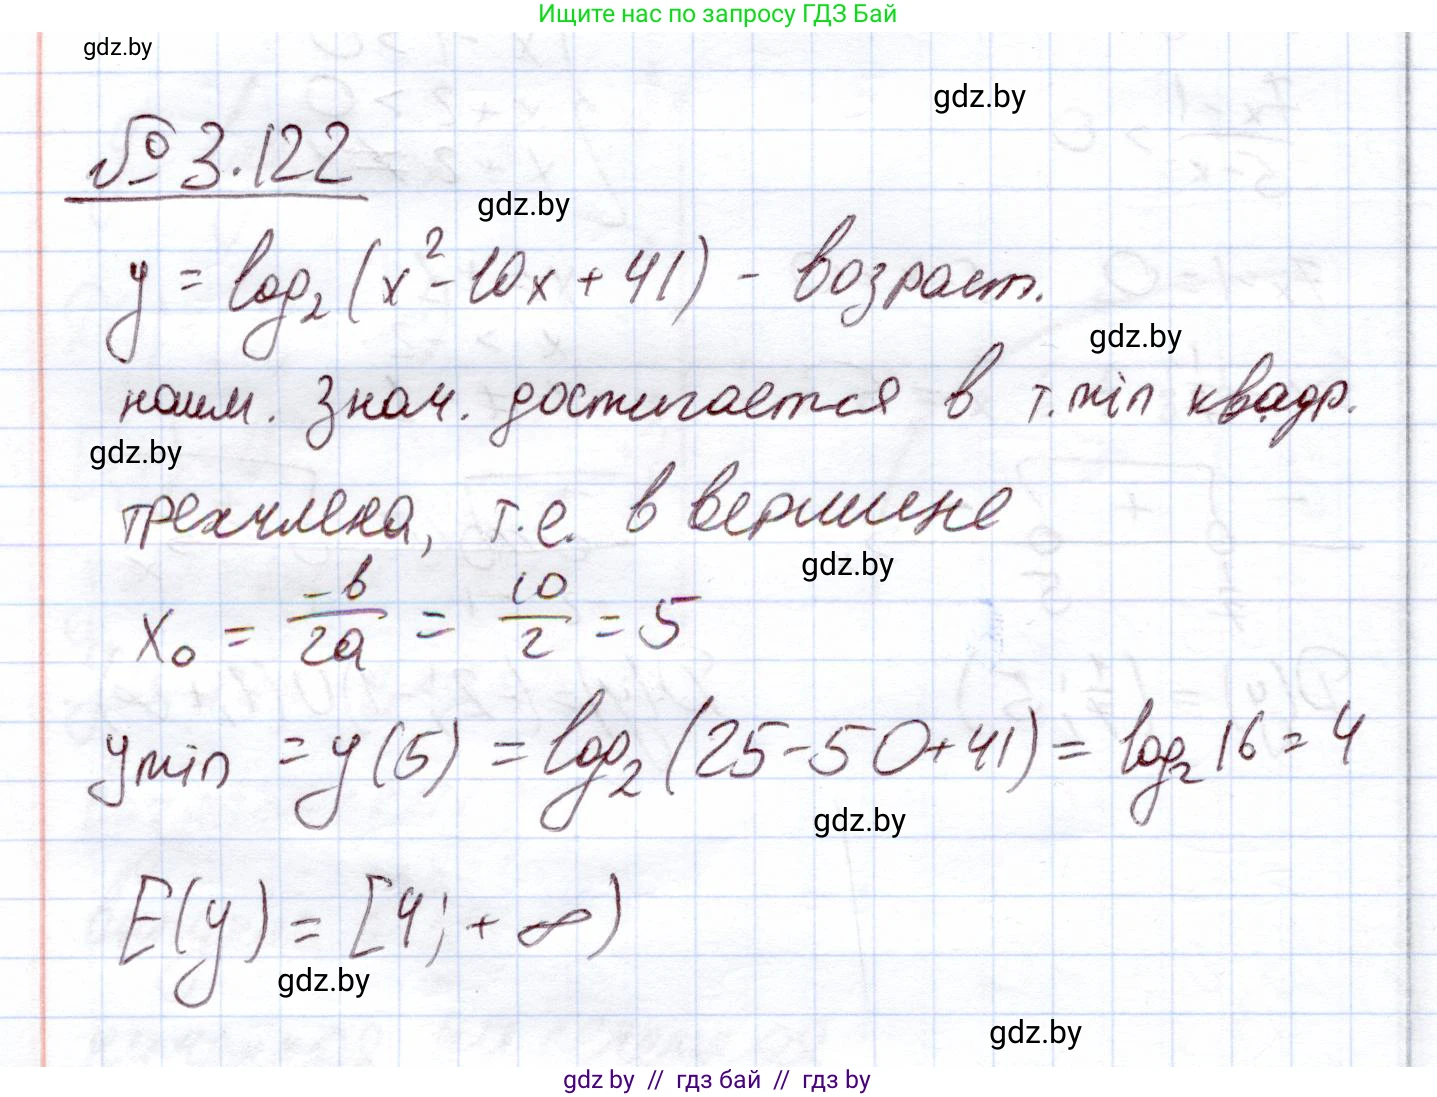 Ищите нас по запросу ГДЗ Бай
gdz.by
gdz.by
№ 3.122
gdz.by
y = log₂(x² - 10x + 41) - возраст.
gdz.by
наим. знач. достигается в т. min квадр.
gdz.by
трехчлена, т.е. в вершине
gdz.by
x₀ = -b/2a = 10/2 = 5
y min = y(5) = log₂(25 - 50 + 41) = log₂16 = 4
gdz.by
E(y) = [4; +∞)
gdz.by
gdz.by
gdz by // гдз бай // гдз by